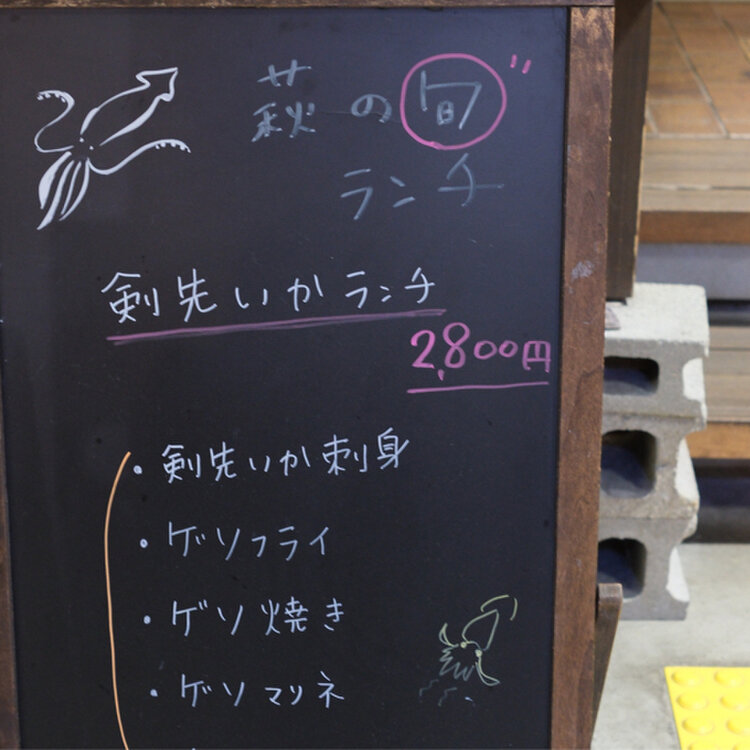 萩の旬
ランチ
剣先いかランチ
2,800円
・剣先いか刺身
・ゲソフライ
・ゲソ焼き
・ゲソマリネ